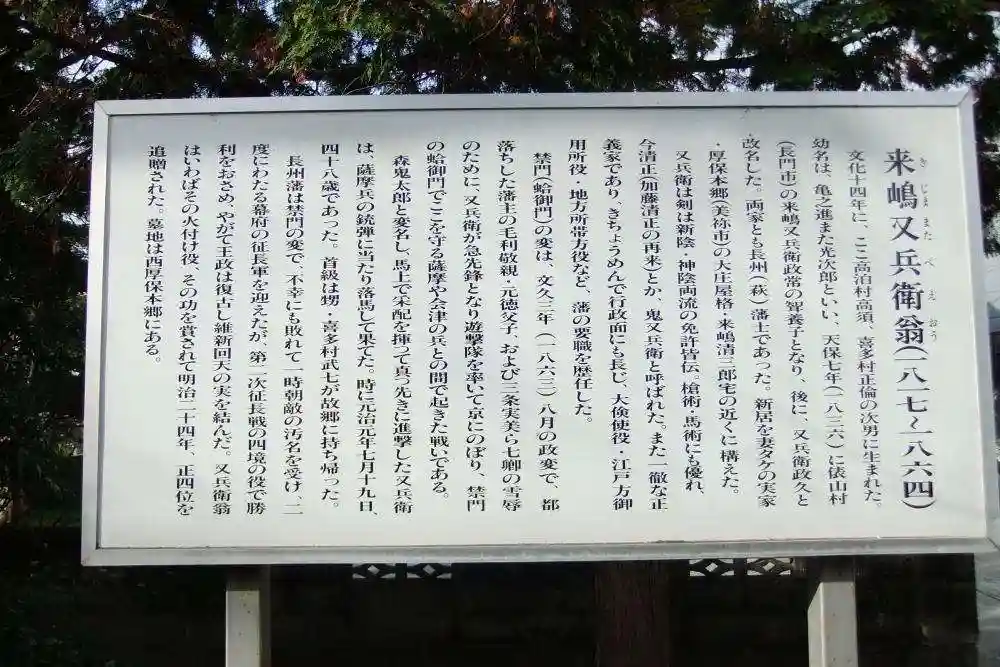 来嶋又兵衛翁(一八一七〜一八六四)
きじままたべえおう
文化十四年に、ここ高泊村高須、喜多村正倫の次男に生まれた。
幼名は、亀之進また光次郎といい、天保七年(一八三六)に俵山村
(長門市)の来嶋又兵衛政常の智養子となり、後に、又兵衛政久と
改名した。両家とも長州(萩)藩士であった。新居を妻タケの実家
・厚保本郷(美祢市)の大庄屋格・来嶋清三郎宅の近くに構えた。
又兵衛は剣は新陰・神陰両流の免許皆伝、槍術・馬術にも優れ、
今清正(加藤清正の再来とか、鬼又兵衛と呼ばれた。また一徹な正
義家であり、きちょうめんで行政面にも長じ、大倹使役・江戸方御
用所役・地方所帯方役など、藩の要職を歴任した。
禁門(蛤御門)の変は、文久三年(一八六三)八月の政変で、都
落ちした藩主の毛利敬親・元徳父子、および三条実美ら七卿の雪辱
のために、又兵衛が急先鋒となり遊撃隊を率いて京にのぼり、禁門
の蛤御門でここを守る薩摩や会津の兵との間で起きた戦いである。
森鬼太郎と変名し、馬上で采配を揮って真っ先きに進撃した又兵衛
は、薩摩兵の銃弾に当たり落馬して果てた。時に元治元年七月十九日、
四十八歳であった。首級は甥・喜多村武七が故郷に持ち帰った。
長州藩は禁門の変で、不幸にも敗れて一時朝敵の汚名を受け、二
度にわたる幕府の征長軍を迎えたが、第二次征長戦の四境の役で勝
利をおさめ、やがて王政は復古し維新回天の実を結んだ。又兵衛翁
はいわばその火付け役、その功を賞されて明治二十四年、正四位を
追贈された。墓地は西厚保本郷にある。